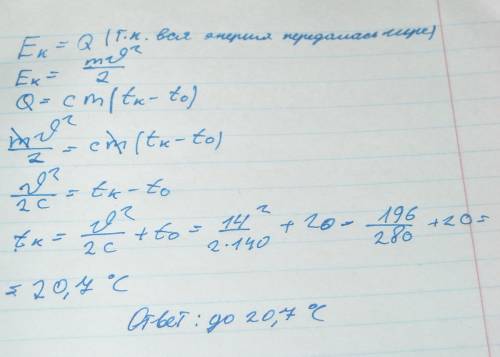 Eк = Q (т.к. вся энергия передалась пуле)
Eк = mv²/2
Q = cm(tк - t₀)
mv²/2 = cm(tк - t₀)
v²/2c = tк - t₀
tк = v²/2c + t₀ = 14²/2·140 + 20 = 196/280 + 20 =
= 20,7 °C
Ответ: до 20,7 °C